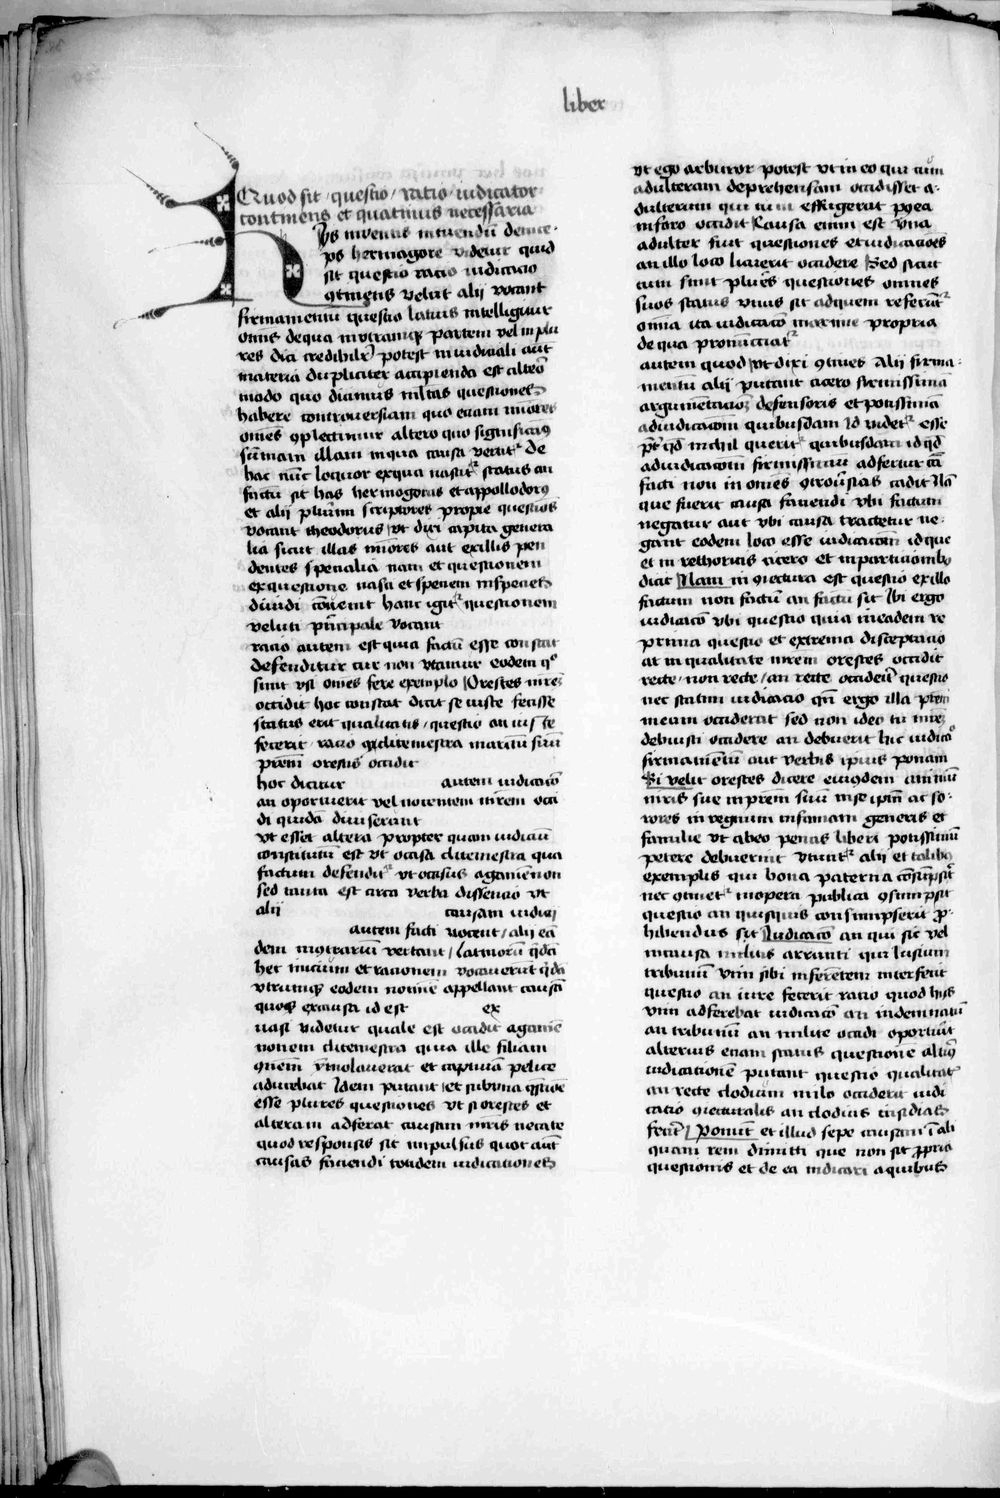 liber
Quod sit questio ratio iudicatio
continens et quatinus necessaria
Hys inventis intuendū deince
ps hermagore videtur quid
sit questio ratio iudicacio
ꝯtinens velut alij vocant
firmamentū questio latius intelligitur
omnis de qua in utramqꝫ partem vel in plu
res dici credibilr̄ potest in iudiciali aūt
materia dupliciter accipienda est alt̄o
modo quo dicimus ml̄tas questiones
habere controuersiam quo etiam mīores
om̄es ꝯplectimur altero quo significamꝰ
sūmam illam in qua causa vertit᷑ de
hac nūc loquor ex qua nascit᷑ status an
factū sit has hermogoras et appollodorꝰ
et alij plurimi scriptores proprie questiōes
vocant theodorus vt dixi capita genera
lia sicut illas mīores aut ex illis pen
dentes specialia nam et questionem
ex questione nasci et speciem in species
diuidi cōuenit hanc igit᷑ questionem
veluti prīcipale vocant
racio autem est qua factū esse constat
defenditur cur non vtamur eodem qͦ
sunt vsi om̄es fere exemplo Orestes mr̄eꝫ
occidit hoc constat dicit se iuste fecisse
status erit qualitatis questio an iuste
fecerit racio ꝙ clitemestra maritū suū
prēm orestis occidit
hoc dicitur autem iudicatō
an oportuerit vel nocentem mr̄em occi
di quidā diuiserunt
vt esset altera propter quam iudiciū
constitutū est vt occisa clitemestra qua
factum defendit᷑ vt occisus agamenon
sed tanta est circa verba dissensio vt
alii causam iudicij
autem facti vocent alij eā
dem in ꝯtrariū vertant latinorū q̄dā
hec inicium et rationem vocauerūt q̄dā
vtrumqꝫ eodem nomīe appellant causā
quoqꝫ ex causa id est ex
nasi videtur quale est occidit agamē
nonem clitemestra quia ille filiam
cōmūem ymolauerat et captiuā pelice
aducebat Idem putant et sub vna q̄stiōe
esse plures questiones vt si orestes et
alteram adferat causam mr̄is necate
quod responsis sit impulsus quot aūt
causas faciendi totidem iudicationes
vt ego arbitror potest vt in eo qui cūm
adulteram deprehensam occidisset a-
dulterum qui tum effugerat p̄ea
in foro occidit Causa enim est vna
adulter fuit questiones et iudicatiōes
an illo loco licuerit occidere Sed sicut
cum sint plures questiones om̄nes
suos status vnus sit ad quem referāt᷑
om̄ia ita iudicatō maxime propria
de qua pronūciat᷑
autem quod vt dixi ꝯtines Alij firma-
mentū alij putant cicero firmissimā
argumētacioꝫ defensoris et potissimā
ad iudicatōm quibusdam Id videt᷑ esse
p̄t qd̄ nichil querit᷑ quibusdam id qd̄
ad iudicatōm firmissimū adfertur cā
facti non in om̄es ꝯtrouˀsias cadit Nā
que fuerit causa faciendi vbi factum
negatur aut vbi causa tractetur ne-
gant eodem loco esse iudicatōm idque
et in rethoricis cicero et in particiōnibꝰ
dicit Nam in ꝯiectura est questio ex illo
factum non factū an factū sit Ibi ergo
iudicatō vbi questio quia in eadem re
prima questio et extrema disceptatio
at in qualitate mr̄em orestes occidit
recte non recte an recte occiderit questio
nec statim iudicacio qn̄ ergo illa p̄rem
meum occiderat sed non ideo tu mr̄eꝫ
debuisti occidere an debuerit hic iudicaͦ
firmamentū aut verbis ipsius ponam
Si velit orestes dicere eiusdem animū
mr̄is sue in prēm suū in se ipm̄ ac so-
rores in regnum in famam generis et
familie vt ab eo penas liberi potissimū
petere debuerint vtunt᷑ alij et talibꝰ
exemplis qui bona paterna cōsūpsit᷑
nec ꝯtinet᷑ in opera publica ꝯsumpsit
questio an quisquis consumpserit p̱-
hibendus sit Iudicatō an qui sic vel
in causa militis arrunti qui lusium
tribunū vim sibi inferentem interfecit
questio an iure fecerit ratio quod his
vim adferebat iudicatō an indemnatū
an tribunū an milite occidi oportuīt
alterius etiam status questionē altīꝰ
iudicationē putant questio qualitatꝰ
an recte clodium milo occiderit iudi
catio ꝯiecturalis an clodius insidias
fecīt Ponūt et illud sepe causam ī ali
quam rem dimitti que non sit p̱pria
questionis et de ea indicari a quibus